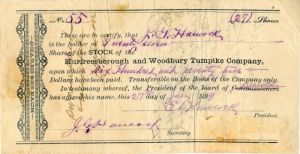 No. 55 (27) Shares
These are to certify, that J. G. Hancock
is the holder of Twenty Seven
Shares of the STOCK of the
Murfreesborough and Woodbury Turnpike Company,
upon which Six Hundred and seventy five
Dollars have been paid. Transferable on the Books of the Company only.
In testimony whereof, the President of the Board of Commissioners
has affixed his name, this 25 day of
President.
J. G. Hancock
Secretary.